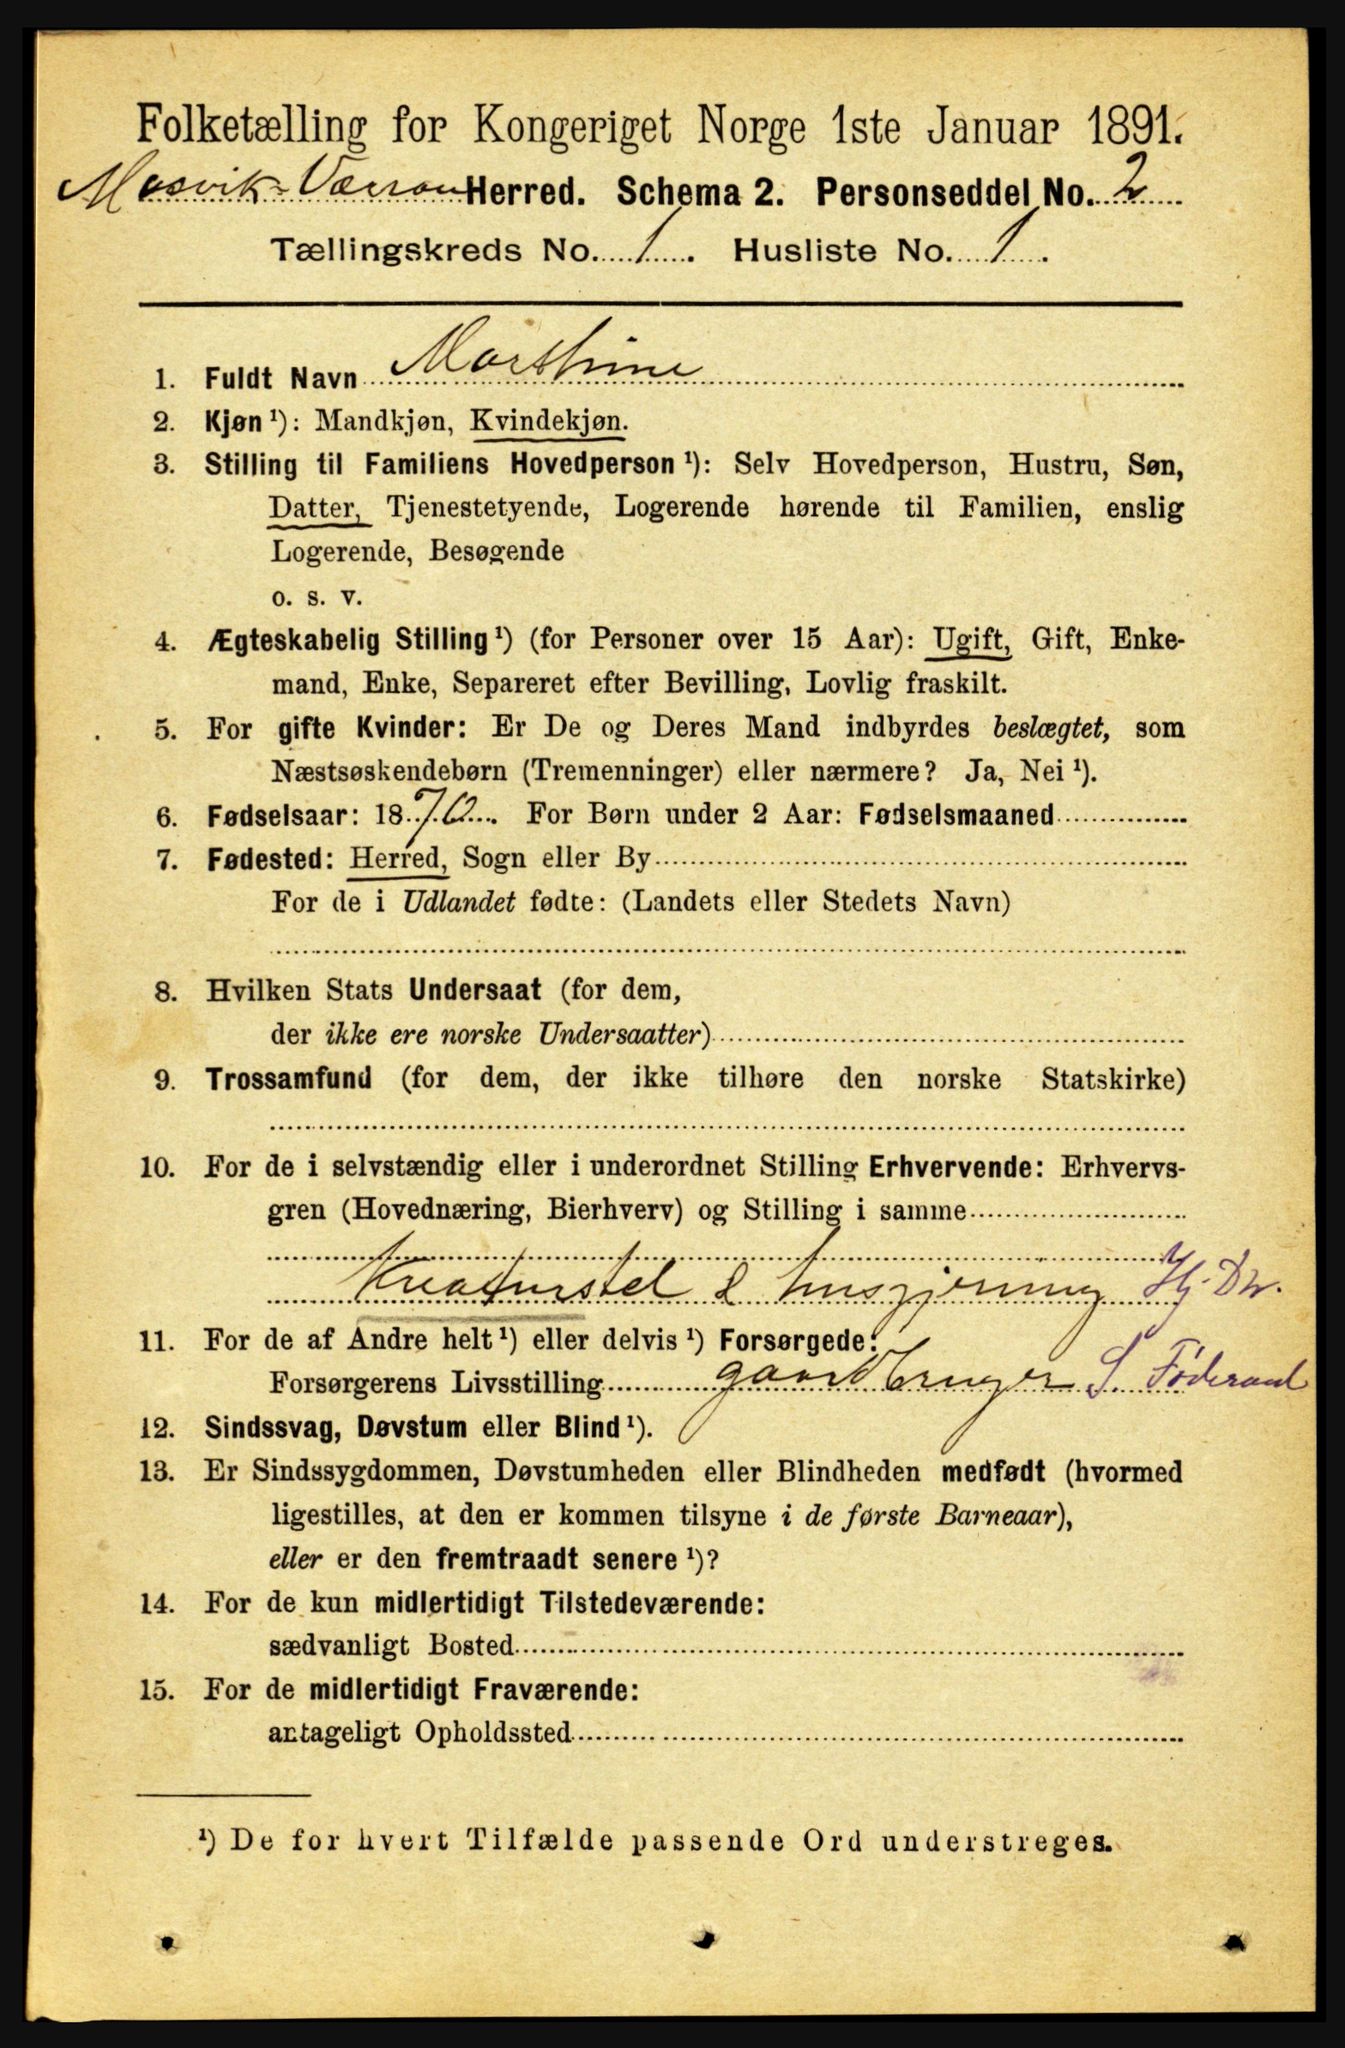 Folketælling for Kongeriget Norge 1ste Januar 1891.
Mosvik-Værran Herred. Schema 2. Personseddel No. 2
Tællingskreds No. 1. Husliste No. 1.
1. Fuldt Navn Marthine
2. Kjøn ¹): Mandkjøn, Kvindekjøn.
3. Stilling til Familiens Hovedperson ¹): Selv Hovedperson, Hustru, Søn,
Datter, Tjenestetyende, Logerende hørende til Familien, enslig
Logerende, Besøgende
o. s. v.
4. Ægteskabelig Stilling ¹) (for Personer over 15 Aar): Ugift, Gift, Enke-
mand, Enke, Separeret efter Bevilling, Lovlig fraskilt.
5. For gifte Kvinder: Er De og Deres Mand indbyrdes beslægtet, som
Næstsøskendebørn (Tremenninger) eller nærmere? Ja, Nei ¹).
6. Fødselsaar: 1870. For Børn under 2 Aar: Fødselsmaaned
7. Fødested: Herred, Sogn eller By
For de i Udlandet fødte: (Landets eller Stedets Navn)
8. Hvilken Stats Undersaat (for dem,
der ikke ere norske Undersaatter)
9. Trossamfund (for dem, der ikke tilhøre den norske Statskirke)
10. For de i selvstændig eller i underordnet Stilling Erhvervende: Erhvervs-
gren (Hovednæring, Bierhverv) og Stilling i samme
Kreaturstel & husgjerning Hj. Dtr.
11. For de af Andre helt ¹) eller delvis ¹) Forsørgede:
Forsørgerens Livsstilling gaardbruger S. Föderaad
12. Sindssvag, Døvstum eller Blind ¹).
13. Er Sindssygdommen, Døvstumheden eller Blindheden medfødt (hvormed
ligestilles, at den er kommen tilsyne i de første Barneaar),
eller er den fremtraadt senere ¹)?
14. For de kun midlertidigt Tilstedeværende:
sædvanligt Bosted
15. For de midlertidigt Fraværende:
antageligt Opholdssted
¹) De for hvert Tilfælde passende Ord understreges.